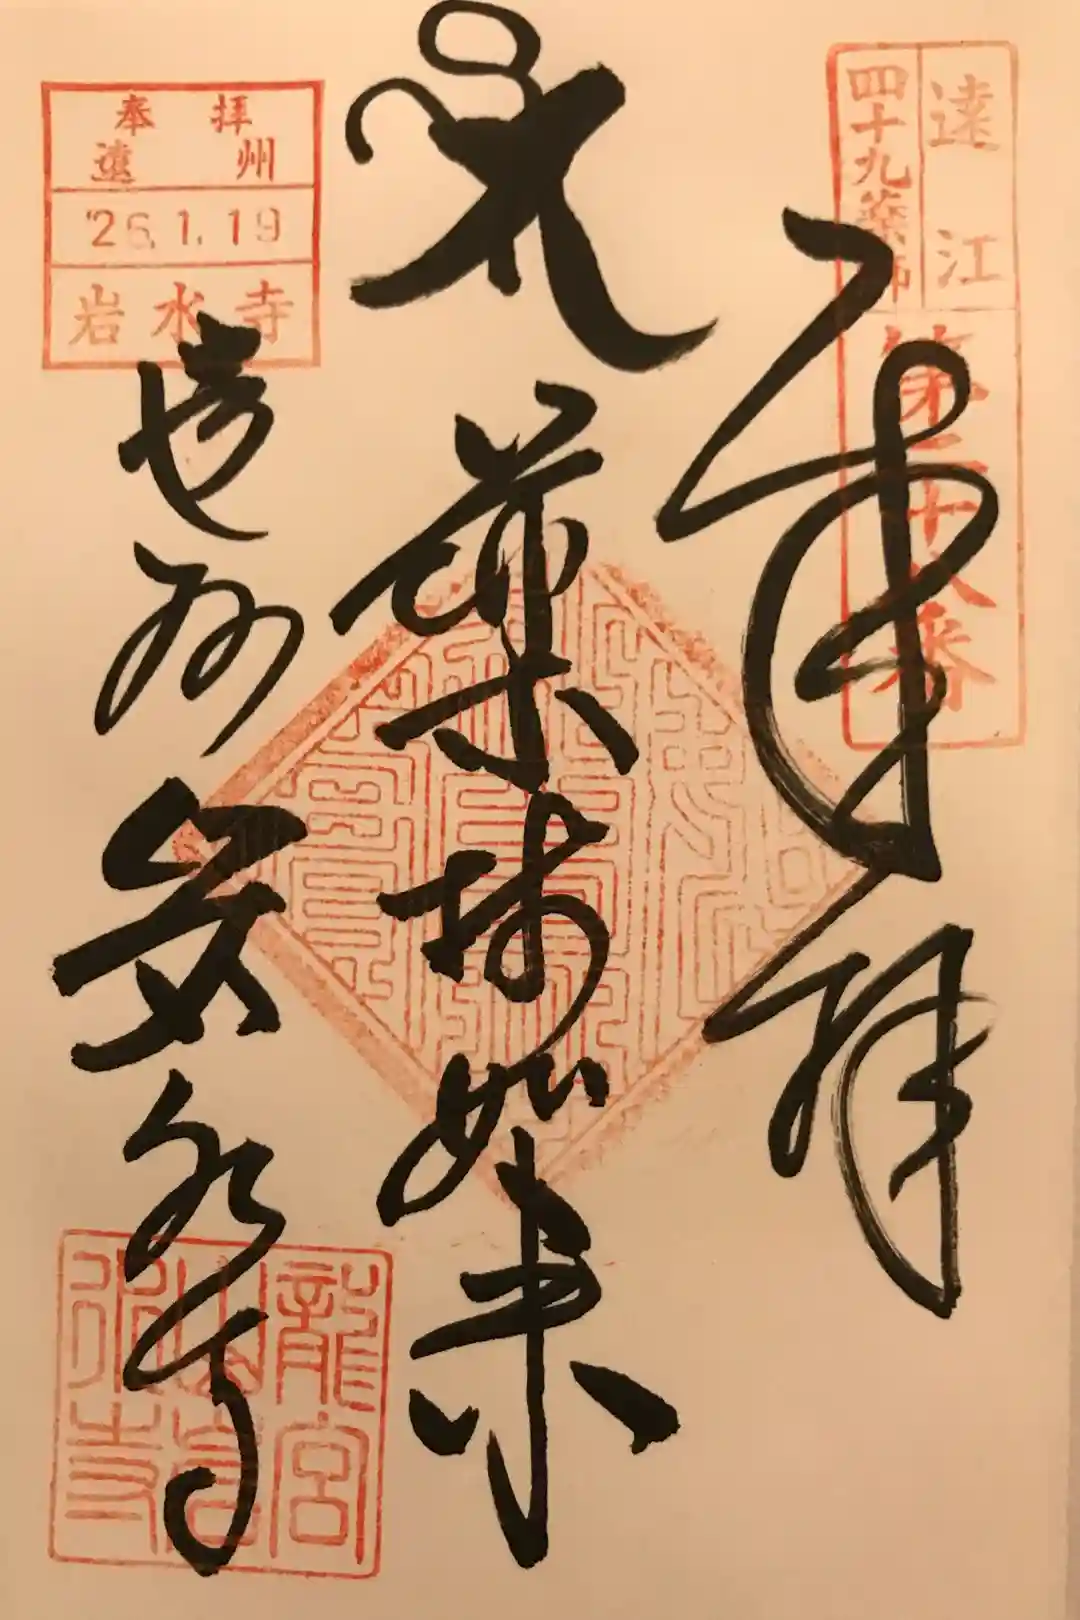 遠江
四十九薬師
第二十八番
奉拝
薬師如来
遠州
岩水寺
奉拝
遠州
'26.1.19
岩水寺
龍宮
山岩
水寺